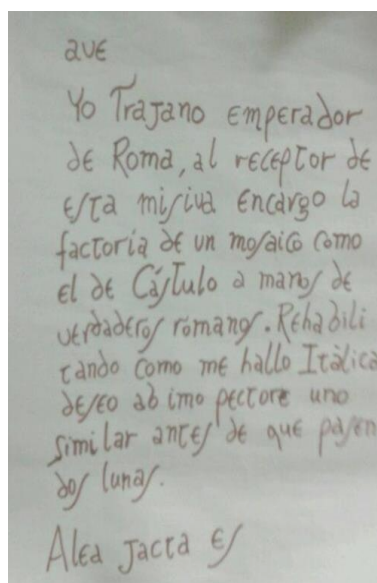 ave
Yo Trajano emperador
de Roma, al receptor de
esta misiva encargo la
factoría de un mosaico como
el de Cástulo a manos de
verdaderos romanos. Rehabili
tando como me hallo Itálica
deseo ab imo pectore uno
similar antes de que pasen
dos lunas.
Alea jacta es